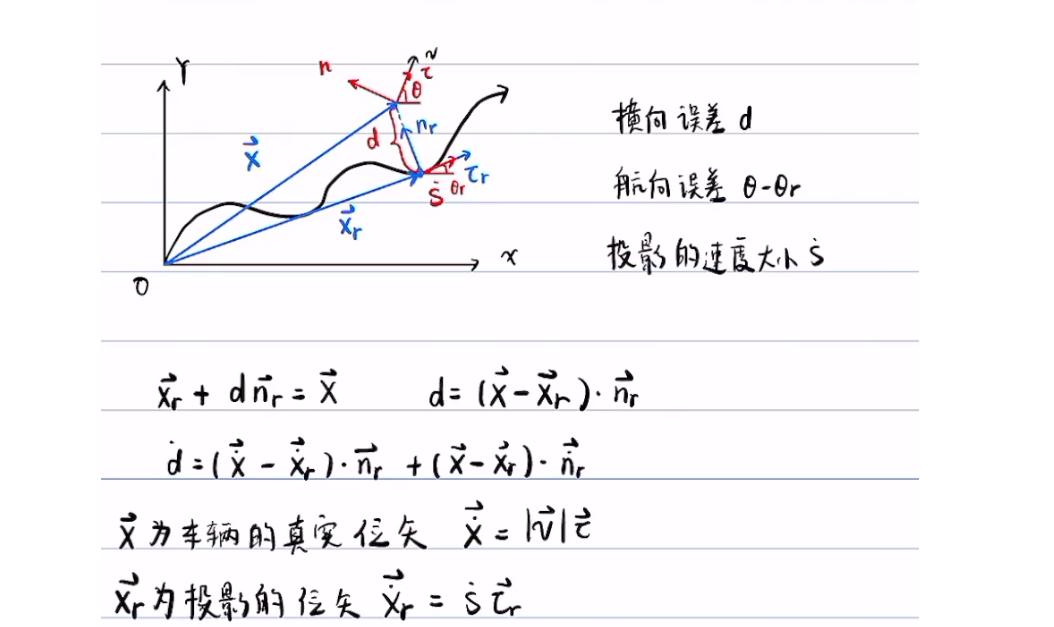 Y
n
v
τ
θ
d
n_r
τ_r
ṡ
θr
x⃗
x⃗_r
x
O
横向误差 d
航向误差 θ-θr
投影的速度大小 ṡ
x⃗_r + d n⃗_r = x⃗    d = (x⃗ - x⃗_r)·n⃗_r
ḋ = (ẋ⃗ - ẋ⃗_r)·n⃗_r + (x⃗ - x⃗_r)·ṅ⃗_r
x⃗ 为车辆的真实位矢  ẋ⃗ = |v⃗|τ⃗
x⃗_r 为投影的位矢  ẋ⃗_r = ṡ τ⃗_r